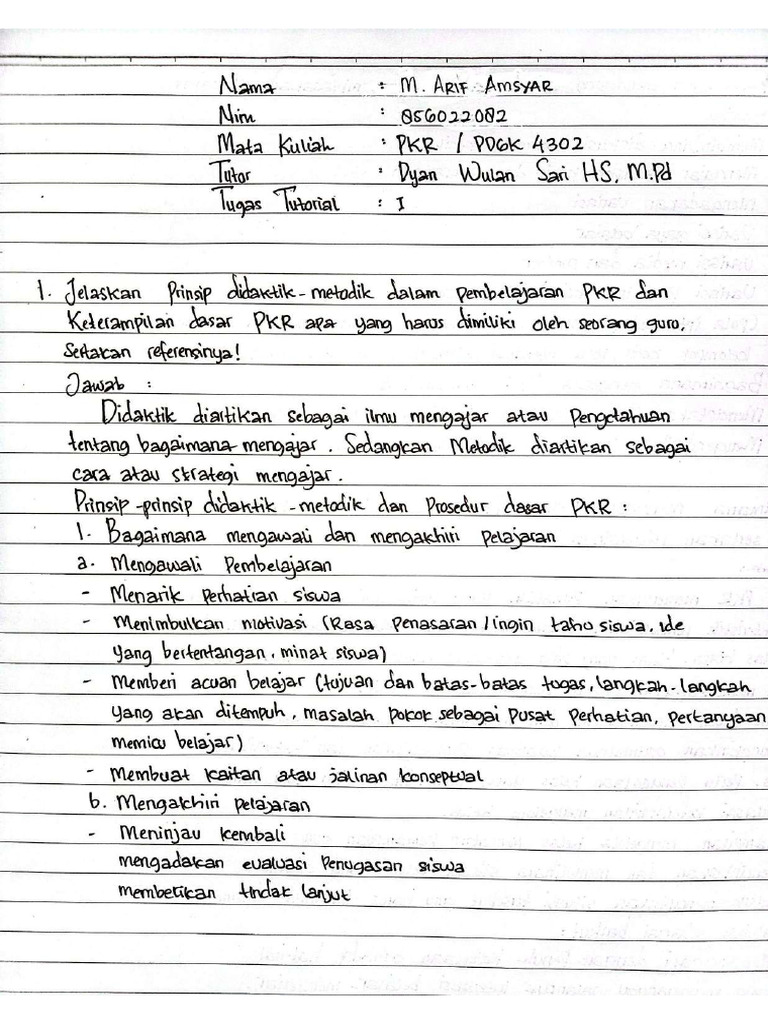 Nama : M. ARIF AMSYAR
Nim : 856022082
Mata Kuliah : PKR / PDGK 4302
Tutor : Dyan Wulan Sari HS, M.Pd
Tugas Tutorial : I
1. Jelaskan Prinsip didaktik-metodik dalam pembelajaran PKR dan
Keterampilan dasar PKR apa yang harus dimiliki oleh seorang guru,
Sertakan referensinya!
Jawab :
Didaktik diartikan sebagai ilmu mengajar atau Pengetahuan
tentang bagaimana mengajar. Sedangkan Metodik diartikan sebagai
cara atau strategi mengajar.
Prinsip-prinsip didaktik-metodik dan Prosedur dasar PKR :
1. Bagaimana mengawali dan mengakhiri pelajaran
a. Mengawali Pembelajaran
- Menarik Perhatian siswa
- Menimbulkan motivasi (Rasa Penasaran/ingin tahu siswa, ide
yang bertentangan, minat siswa)
- Memberi acuan belajar (tujuan dan batas-batas tugas, langkah-langkah
yang akan ditempuh, masalah pokok sebagai pusat perhatian, pertanyaan
memicu belajar)
- Membuat kaitan atau jalinan konseptual
b. Mengakhiri pelajaran
- Meninjau kembali
mengadakan evaluasi Penugasan siswa
memberikan tindak lanjut